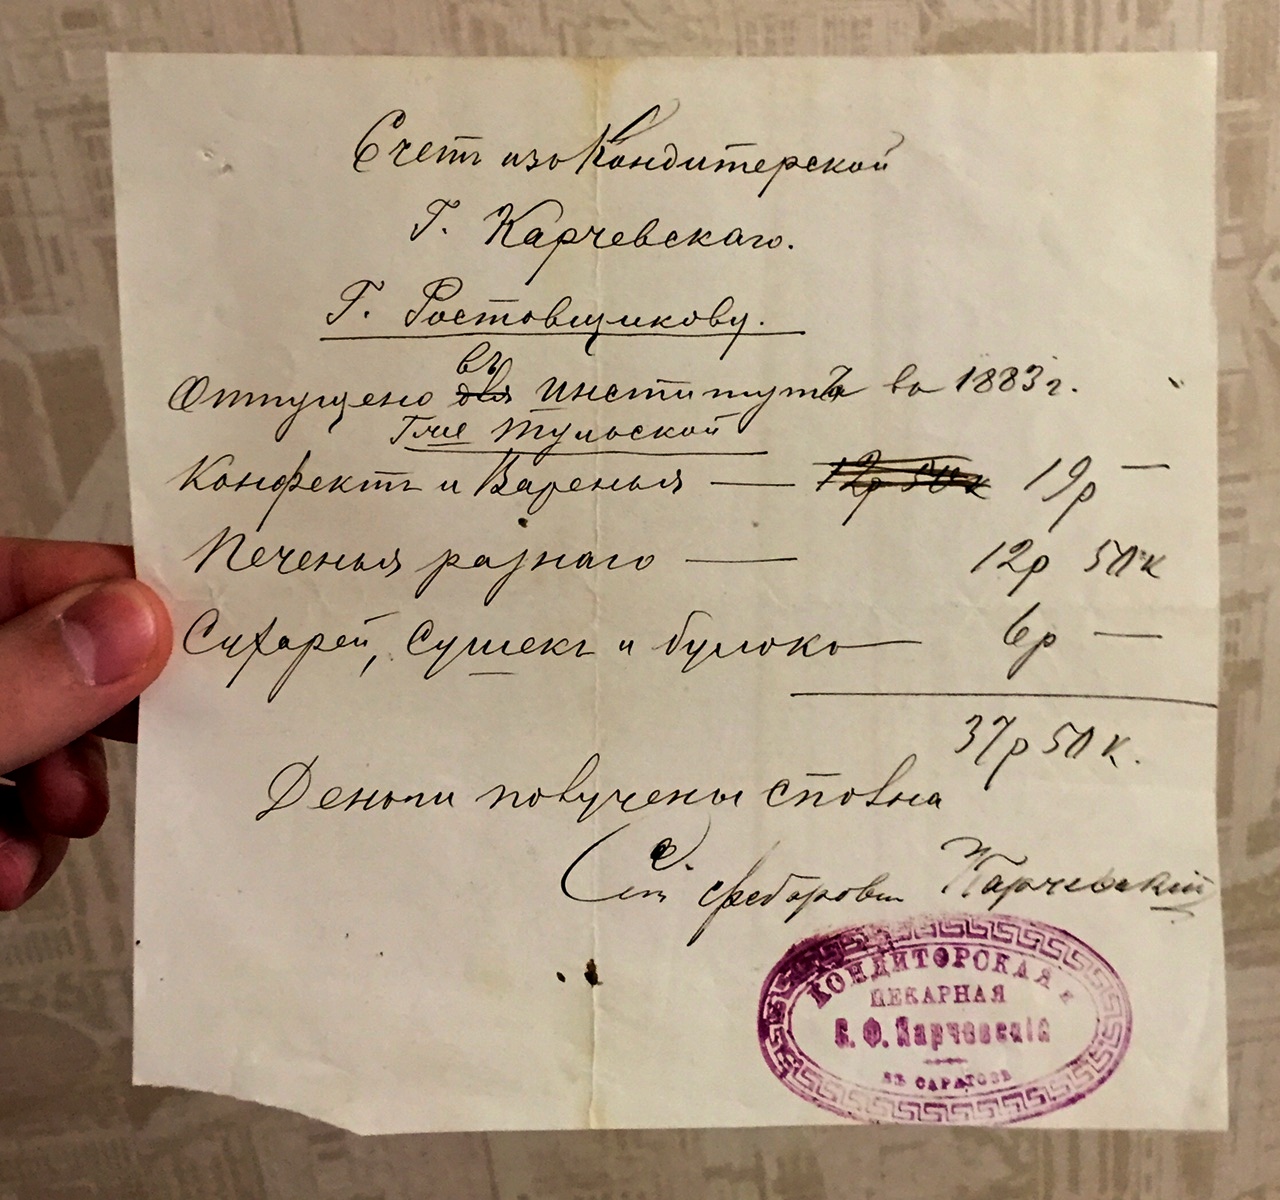 Счетъ изо Кондитерской
Г. Карчевскаго.
Г. Ростовщикову.
въ
Отпущено для Институтъ во 1883 г.
Тульской
Конфектъ и Варенья — 12р 50к 19р —
Печенья разнаго — 12р 50к
Сухарей, Сушекъ и булокъ — 6р —
37р 50 к.
Деньги получены сполна
Федоровъ Карчевскій
КОНДИТОРСКАЯ и
ПЕКАРНАЯ
С. Ф. Карчевскій
ВЪ САРАТОВѢ